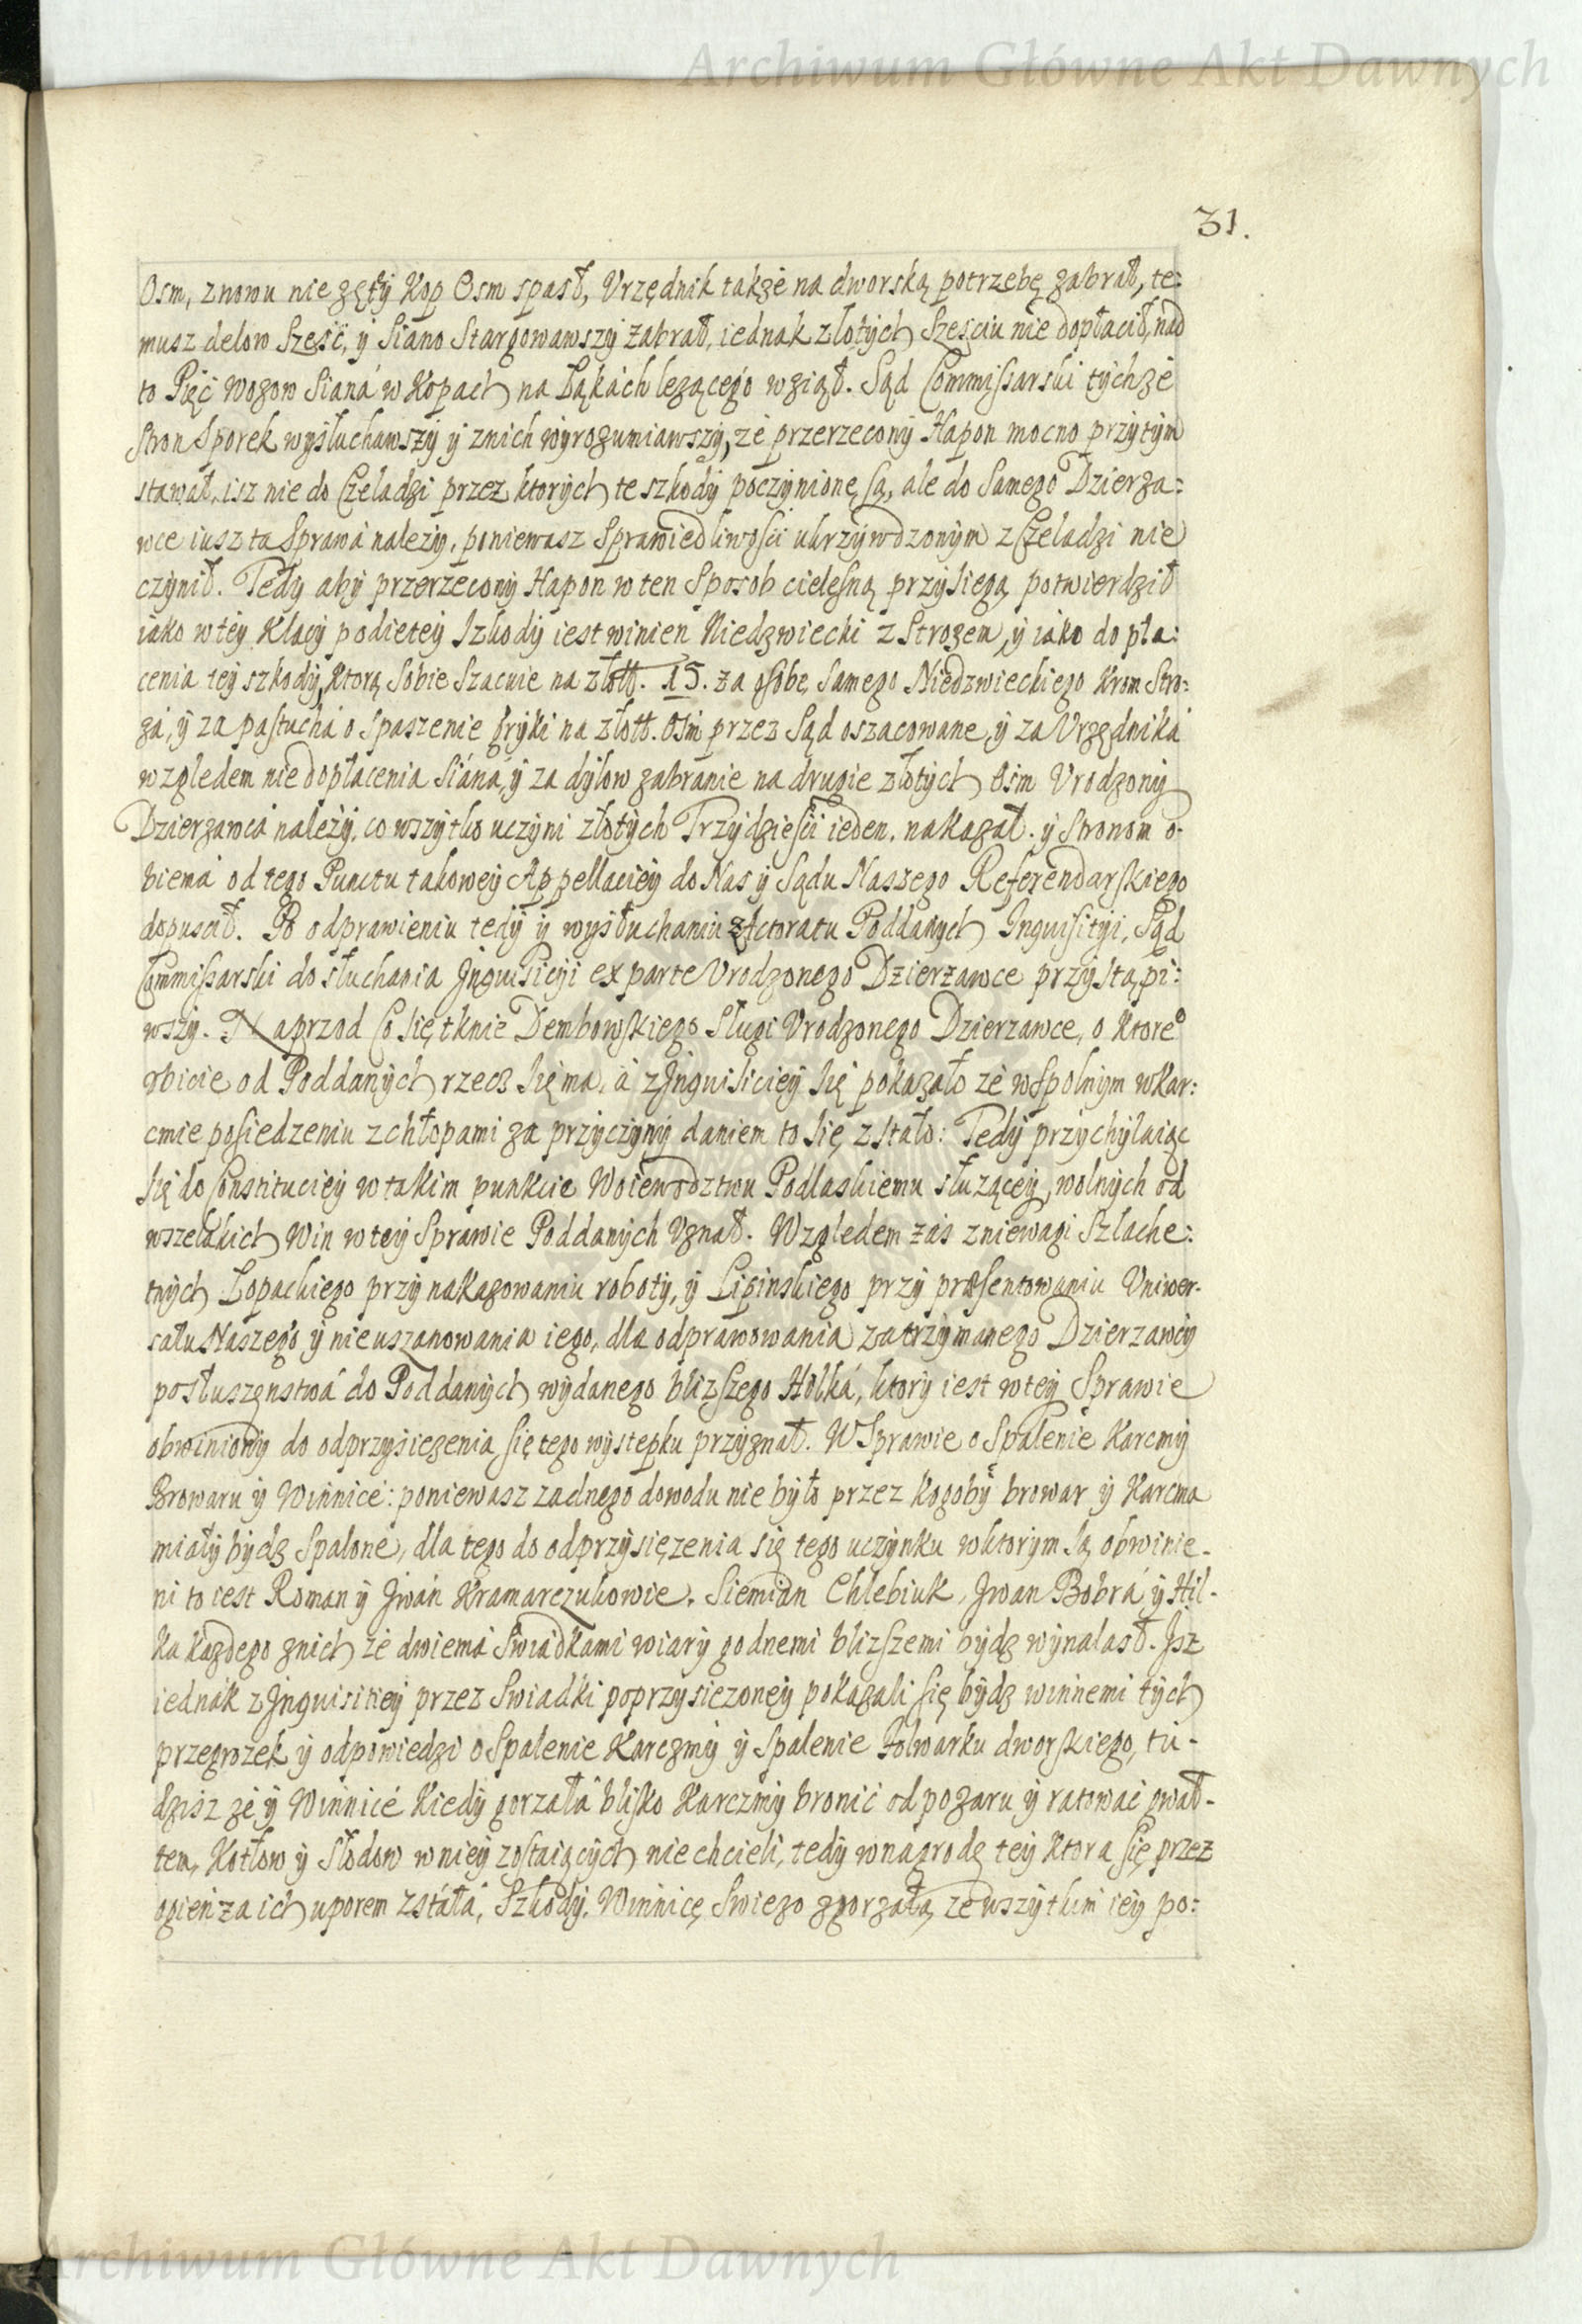 Archiwum Główne Akt Dawnych
31.
Osm, znowu nie zęty Kop Osm spasł, Vrzędnik także na dworską potrzebę zabrał, te:
musz delow Sześć, y Siano Stargowawszy zabrał, iednak złotych Sześciu nie dopłacił, nad
to Pięć wozow Siana w Kopach na Łąkach lezącego wziął. Sąd Commissarski tychze
Stron Sporek wysłuchawszy y znich wyrozumiawszy, ze przerzecony Hapon mocno przytym
stawał, isz nie do Czeladzi przez ktorych te szkody poczynione są, ale do Samego Dzierza:
wce iusz ta Sprawa nalezy, poniewasz Sprawiedliwości ukrzywdzonym z Czeladzi nie
czynił. Tedy aby przerzecony Hapon w ten Sposob cielesną przysięgą potwierdził
iako wtey Klacy podietey Szkody iest winien Niedzwiecki z Strozem, y iako do pła:
cenia tey szkody, Ktorą Sobie Szacuie na złott. 15. za osobę Samego Niedzwieckiego Krom Stro:
za, y za pastucha o Spaszenie gryki na złott. Osm przez Sąd oszacowane, y za Vrzędnika
względem niedopłacenia Siana, y za dylow zabranie na drugie złotych Osm Vrodzony
Dzierzawca nalezy, co wszytko uczyni złotych Trzydzieści ieden, nakazał. y Stronom o-
biema od tego Punctu takowey Appellaciey do Nas y Sądu Naszego Referendarskiego
dopuscił. Po odprawieniu tedy y wysłuchaniu z Actoratu Poddanych Inquisityi, Sąd
Commissarski do słuchania Jnquisicyi ex parte Vrodzonego Dzierzawce przystąpi:
wszy. Naprzod Co się tknie Dembowskiego Sługi Vrodzonego Dzierzawce, o Ktore°
obicie od Poddanych rzecz się ma, a z Jnquisiciey się pokazało ze wspolnym w Kar:
cmie posiedzeniu z chłopami za przyczyny daniem to się zstało: Tedy przychylaiąc
się do Constituciey w takim punkcie Woiewodztwu Podlaskiemu słuzącey, wolnych od
wszelakich Win w tey Sprawie Poddanych Vznał. Względem zas zniewagi Szlache:
tnych Łopackiego przy nakazowaniu roboty, y Lipinskiego przy præsentowaniu Vniwer-
sału Naszego y nieuszanowania iego, dla odprawowania zatrzymanego Dzierzawcy
posłuszenstwa do Poddanych wydanego blizszego Holka, ktory iest wtey Sprawie
obwiniony do odprzysiezenia się tego wystepku przyznał. W Sprawie o Spalenie Karcmy
Browaru y Winnice: poniewasz zadnego dowodu nie było przez Kogoby browar y Karcma
miały bydz Spalone, dla tego do odprzysięzenia się tego uczynku wktorym są obwinie-
ni to iest Roman y Jwan Kramarczukowie, Siemian Chlebiuk, Jwan Bobra y Hil-
ka kazdego znich ze dwiema Swiadkami wiary godnemi blizszemi bydz wynalasł. Jsz
iednak z Jnquisitiey przez Swiadki poprzysiezoney pokazali się bydz winnemi tych
przegrozek y odpowiedzi o Spalenie Karczmy y Spalenie Folwarku dworskiego, tu-
dzisz ze y Winnice Kiedy gorzała blisko Karczmy bronić od pozaru y ratować gwał-
tem, Kotłow y Słodow w niey zostaiących nie chcieli, tedy wnagrodę tey Ktora się przez
ogień za ich uporem zstała, Szkody, Winnicę Swiezo zgorzałą ze wszytkim iey po:
Archiwum Główne Akt Dawnych